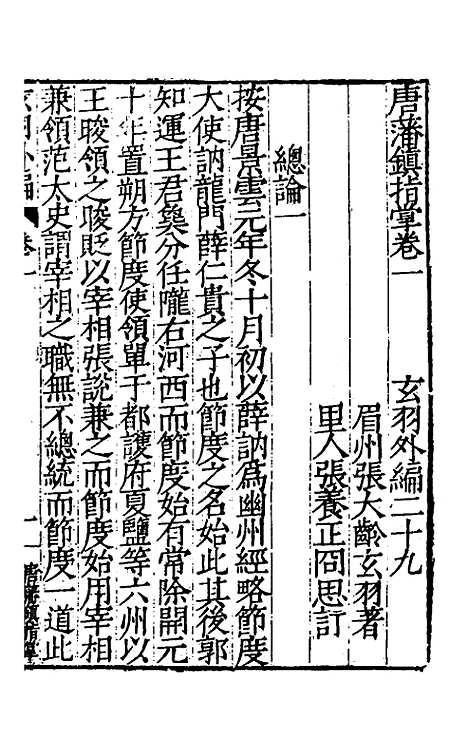 唐藩鎮指掌卷一　玄羽外編二十九
眉州張大齡玄羽著
里人張養正冏思訂
總論一
按唐景雲元年冬十月初以薛訥爲幽州經略節度
大使訥龍門薛仁貴之子也節度之名始此其後郭
知運王君㚟分任隴右河西而節度始有常除開元
十年置朔方節度使領單于都護府夏鹽等六州以
王晙領之晙貶以宰相張說兼之而節度始用宰相
兼領范太史謂宰相之職無不總統而節度一道此
玄羽外編
卷一
一
唐藩鎮指掌